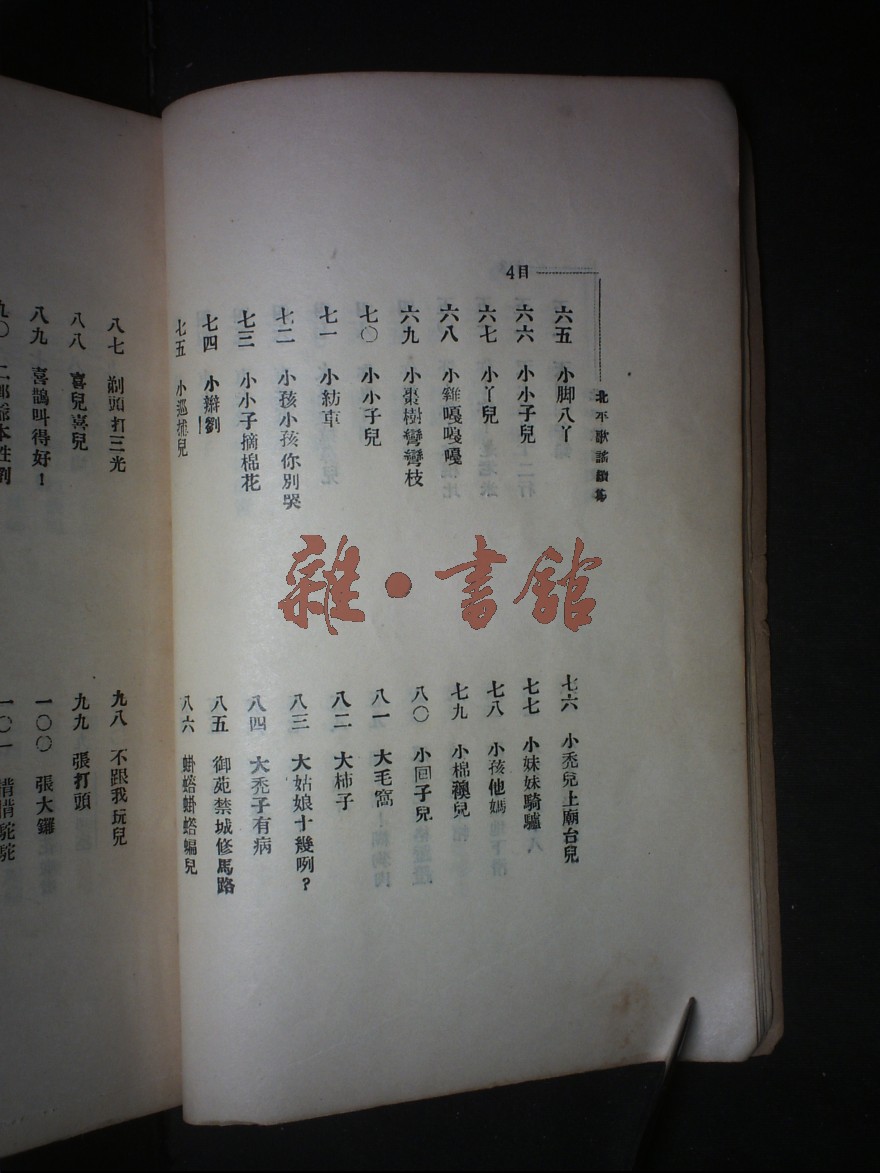 4目
北平歌謠續集
六五 小脚八丫
六六 小小子兒
六七 小丫兒
六八 小雞嘎嘎嘎
六九 小棗樹彎彎枝
七〇 小小子兒
七一 小紡車
七二 小孩小孩你別哭
七三 小小子摘棉花
七四 小辮劉!
七五 小巡捕兒
七六 小禿兒上廟台兒
七七 小妹妹騎驢
七八 小孩他媽
七九 小棉襖兒
八〇 小回子兒
八一 大毛窩!
八二 大柿子
八三 大姑娘十幾咧?
八四 大禿子有病
八五 御苑禁城修馬路
八六 蝙兒
八七 剃頭打三光
八八 喜兒喜兒
八九 喜鵲叫得好!
九〇 二郎爺本姓劉
九八 不跟我玩兒
九九 張打頭
一〇〇 張大鑼
一〇一 駝駝
雜·書館